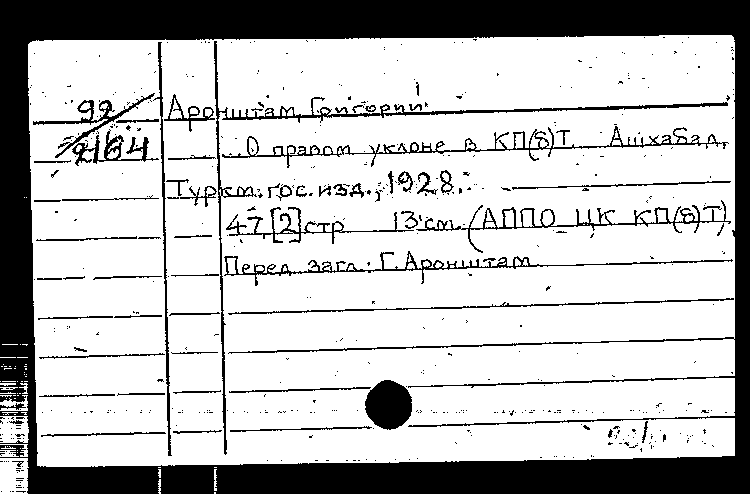 92
2164
Аронштам, Григорий.
...О правом уклоне в КП(б)Т. Ашхабад,
Туркм. гос. изд., 1928.
47,[2] стр 13 см. (АППО ЦК КП(б)Т)
Перед загл.: Г. Аронштам